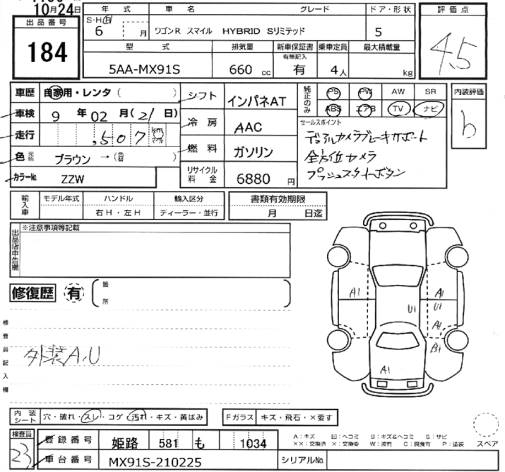 10月24日
年式 車名 グレード ドア・形状 評価点
出品番号
S・H・R 6 月 ワゴンR スマイル HYBRID Sリミテッド 5
184
型式 排気量 新車保証書 乗車定員 最大積載量
有無記入
5AA-MX91S 660 cc 有 4人 kg
4.5
車歴 自家用・レンタ ( ) シフト インパネAT
純正のみ PS PW AW SR 内装評価
ABS エアB TV ナビ
車検 9 年 02 月 (21 日) 冷房 AAC
セールスポイント
b
走行 ,507 km
デジタルカメラブレーキサポート
燃料 ガソリン
全方位カメラ
色 ブラウン → ( )
プッシュスタートボタン
カラーNo. ZZW リサイクル料金 6880円
輸入車 モデル年式 ハンドル 輸入区分 書類有効期限
右H・左H ディーラー・並行 月 日迄
出品店申告欄 ※注意事項等記載
修復歴 有 箇所
検査員記入欄
外装A.U
A1 U1 A1 U1 A1 B1 A1
内装シート 穴・破れ・スレ・コゲ・汚れ・キズ・黄ばみ Fガラス キズ・飛石・×要す
検査員 23
登録番号 姫路 581 も 1034
A:キズ U:凹ヘコミ B:キズ&ヘコミ S:サビ
XX:交換済 X:交換要 W:波済 C:腐食有 P:塗装
スペア
車台番号 MX91S-210225 シリアルNo.